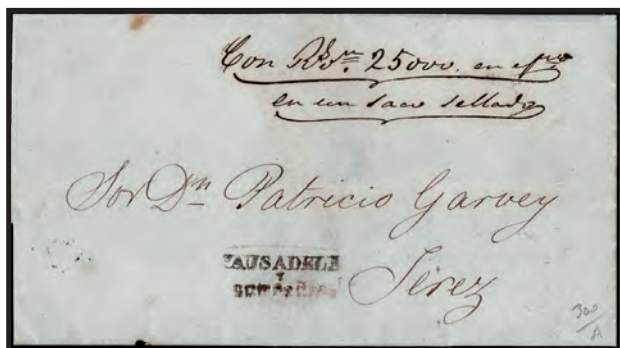 Con Rs.vn 25000. en efvo
en un saco sellado
Sor Dn Patricio Garvey
Jerez
300
A